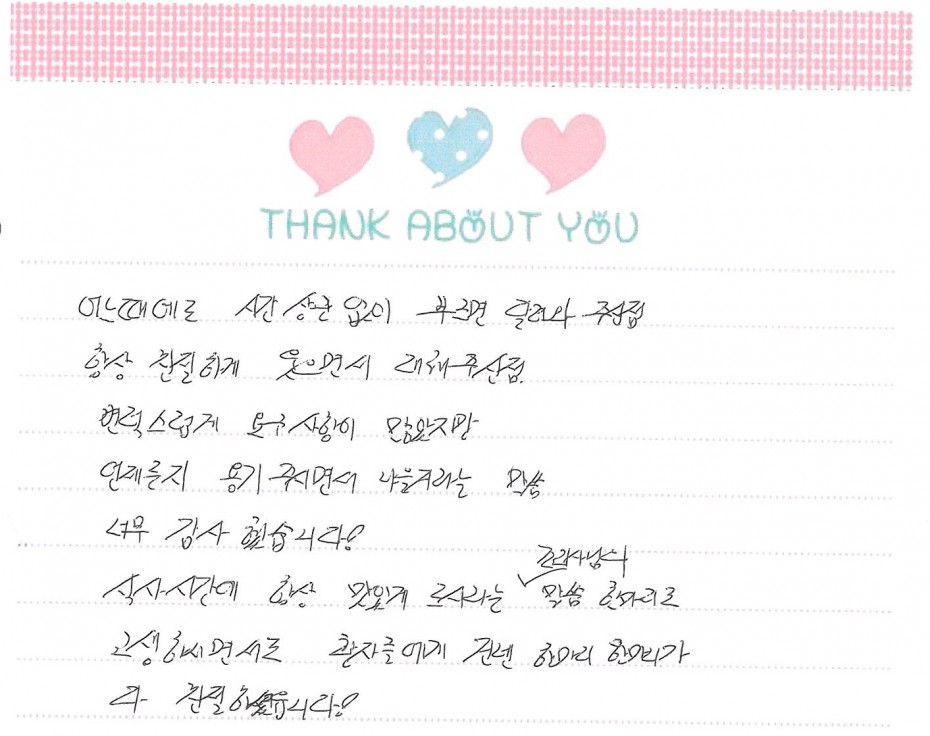 THANK ABOUT YOU
어느때에도 시간 상관 없이 부르면 달려와 주신점
항상 친절하게 웃으면서 대해주신점
변덕스럽게 요구사항이 많았지만
언제든지 용기 주시면서 나을거라는 말씀
너무 감사 했습니다!
식사시간에 항상 맛있게 드시라는 조리사님의 말씀 한마디도
고생하시면서도 환자들에게 건넨 한마디 한마디가
다 친절하셨습니다!